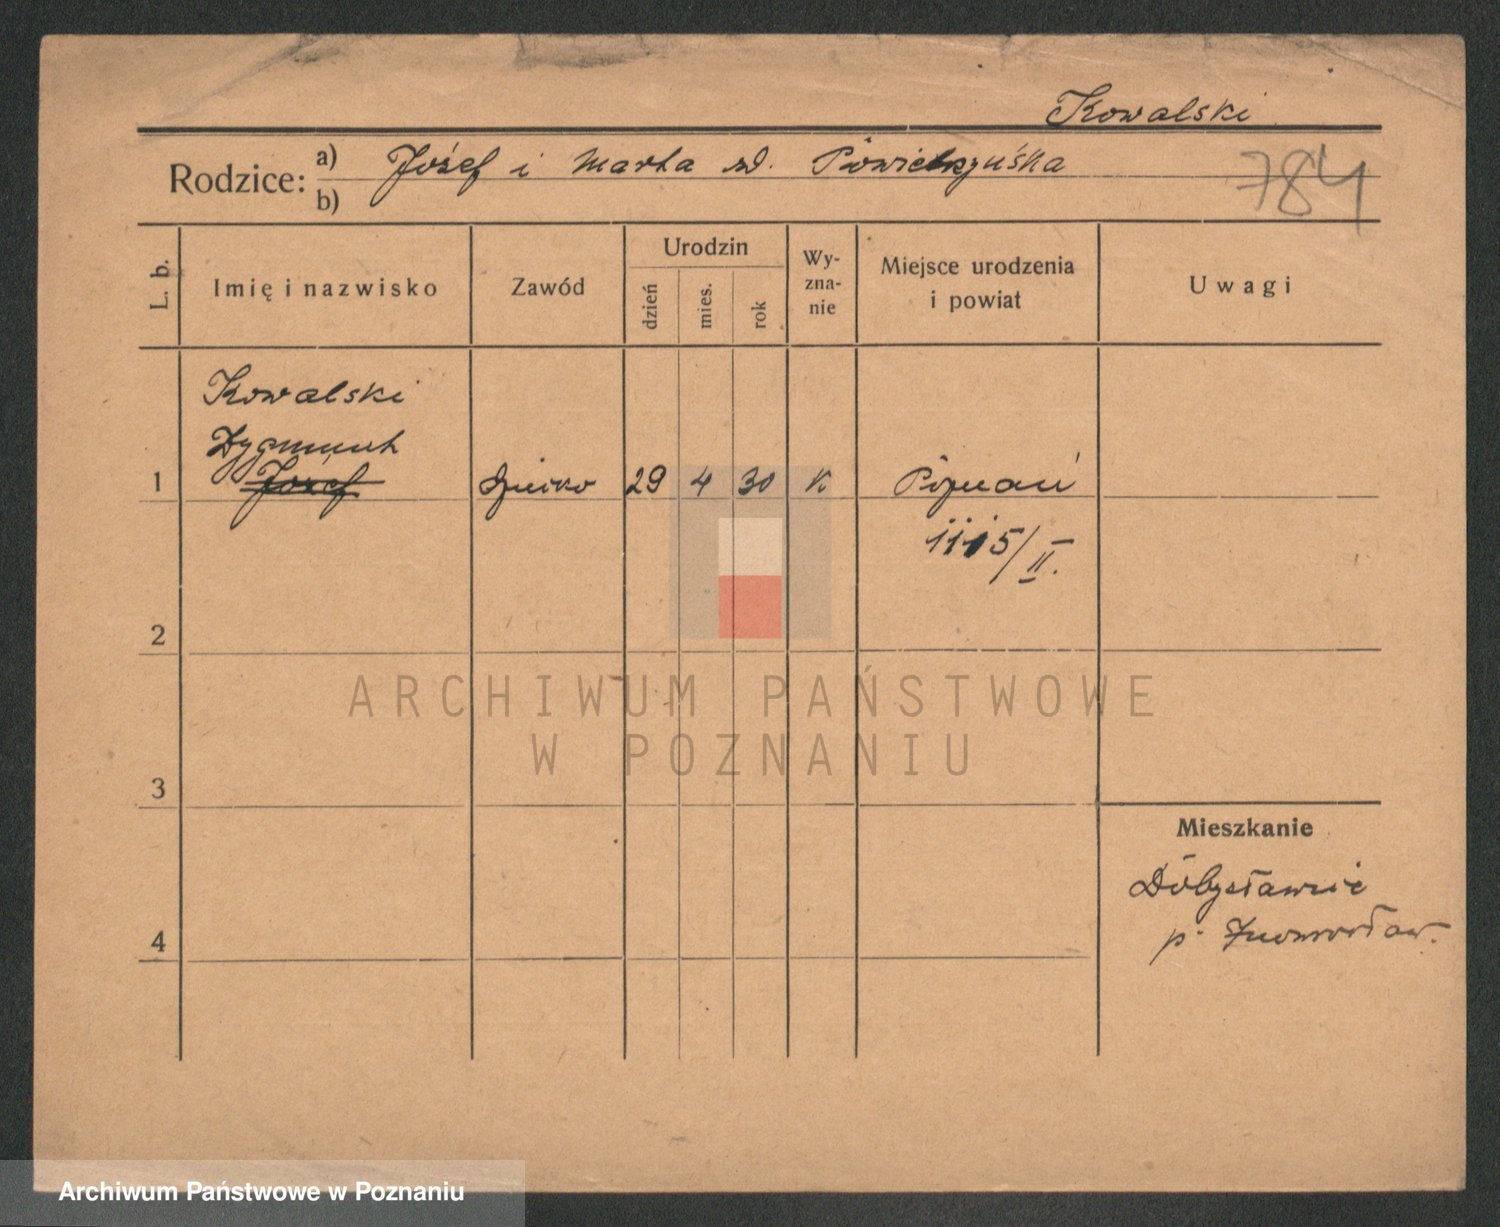 Kowalski
Rodzice: a) Józef i Marta zd.
b)
784
L. b.
Imię i nazwisko
Zawód
Urodzin
dzień
mies.
rok
Wy-
zna-
nie
Miejsce urodzenia
i powiat
Uwagi
Kowalski
Zygmunt
Józef
1 dziecko 29 4 30 K Poznań
1115/II.
2
3
4
Mieszkanie
p. Inowrocław.
ARCHIWUM PAŃSTWOWE
W POZNANIU
Archiwum Państwowe w Poznaniu